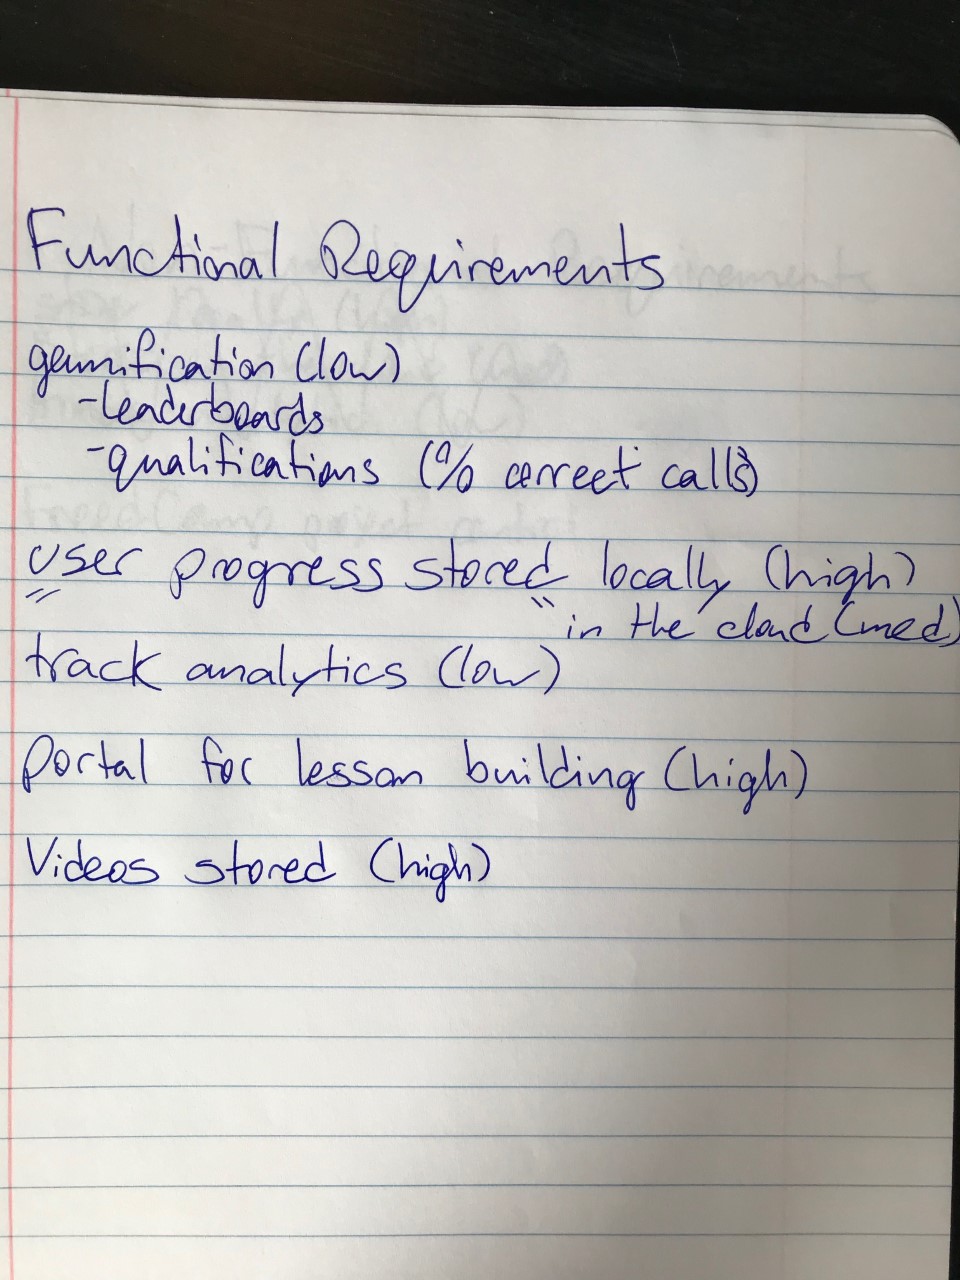 Functional Requirements
gamification (low)
-leaderboards
-qualifications (% correct calls)
user progress stored locally (high)
" " in the cloud (med)
track analytics (low)
Portal for lesson building (high)
Videos stored (high)